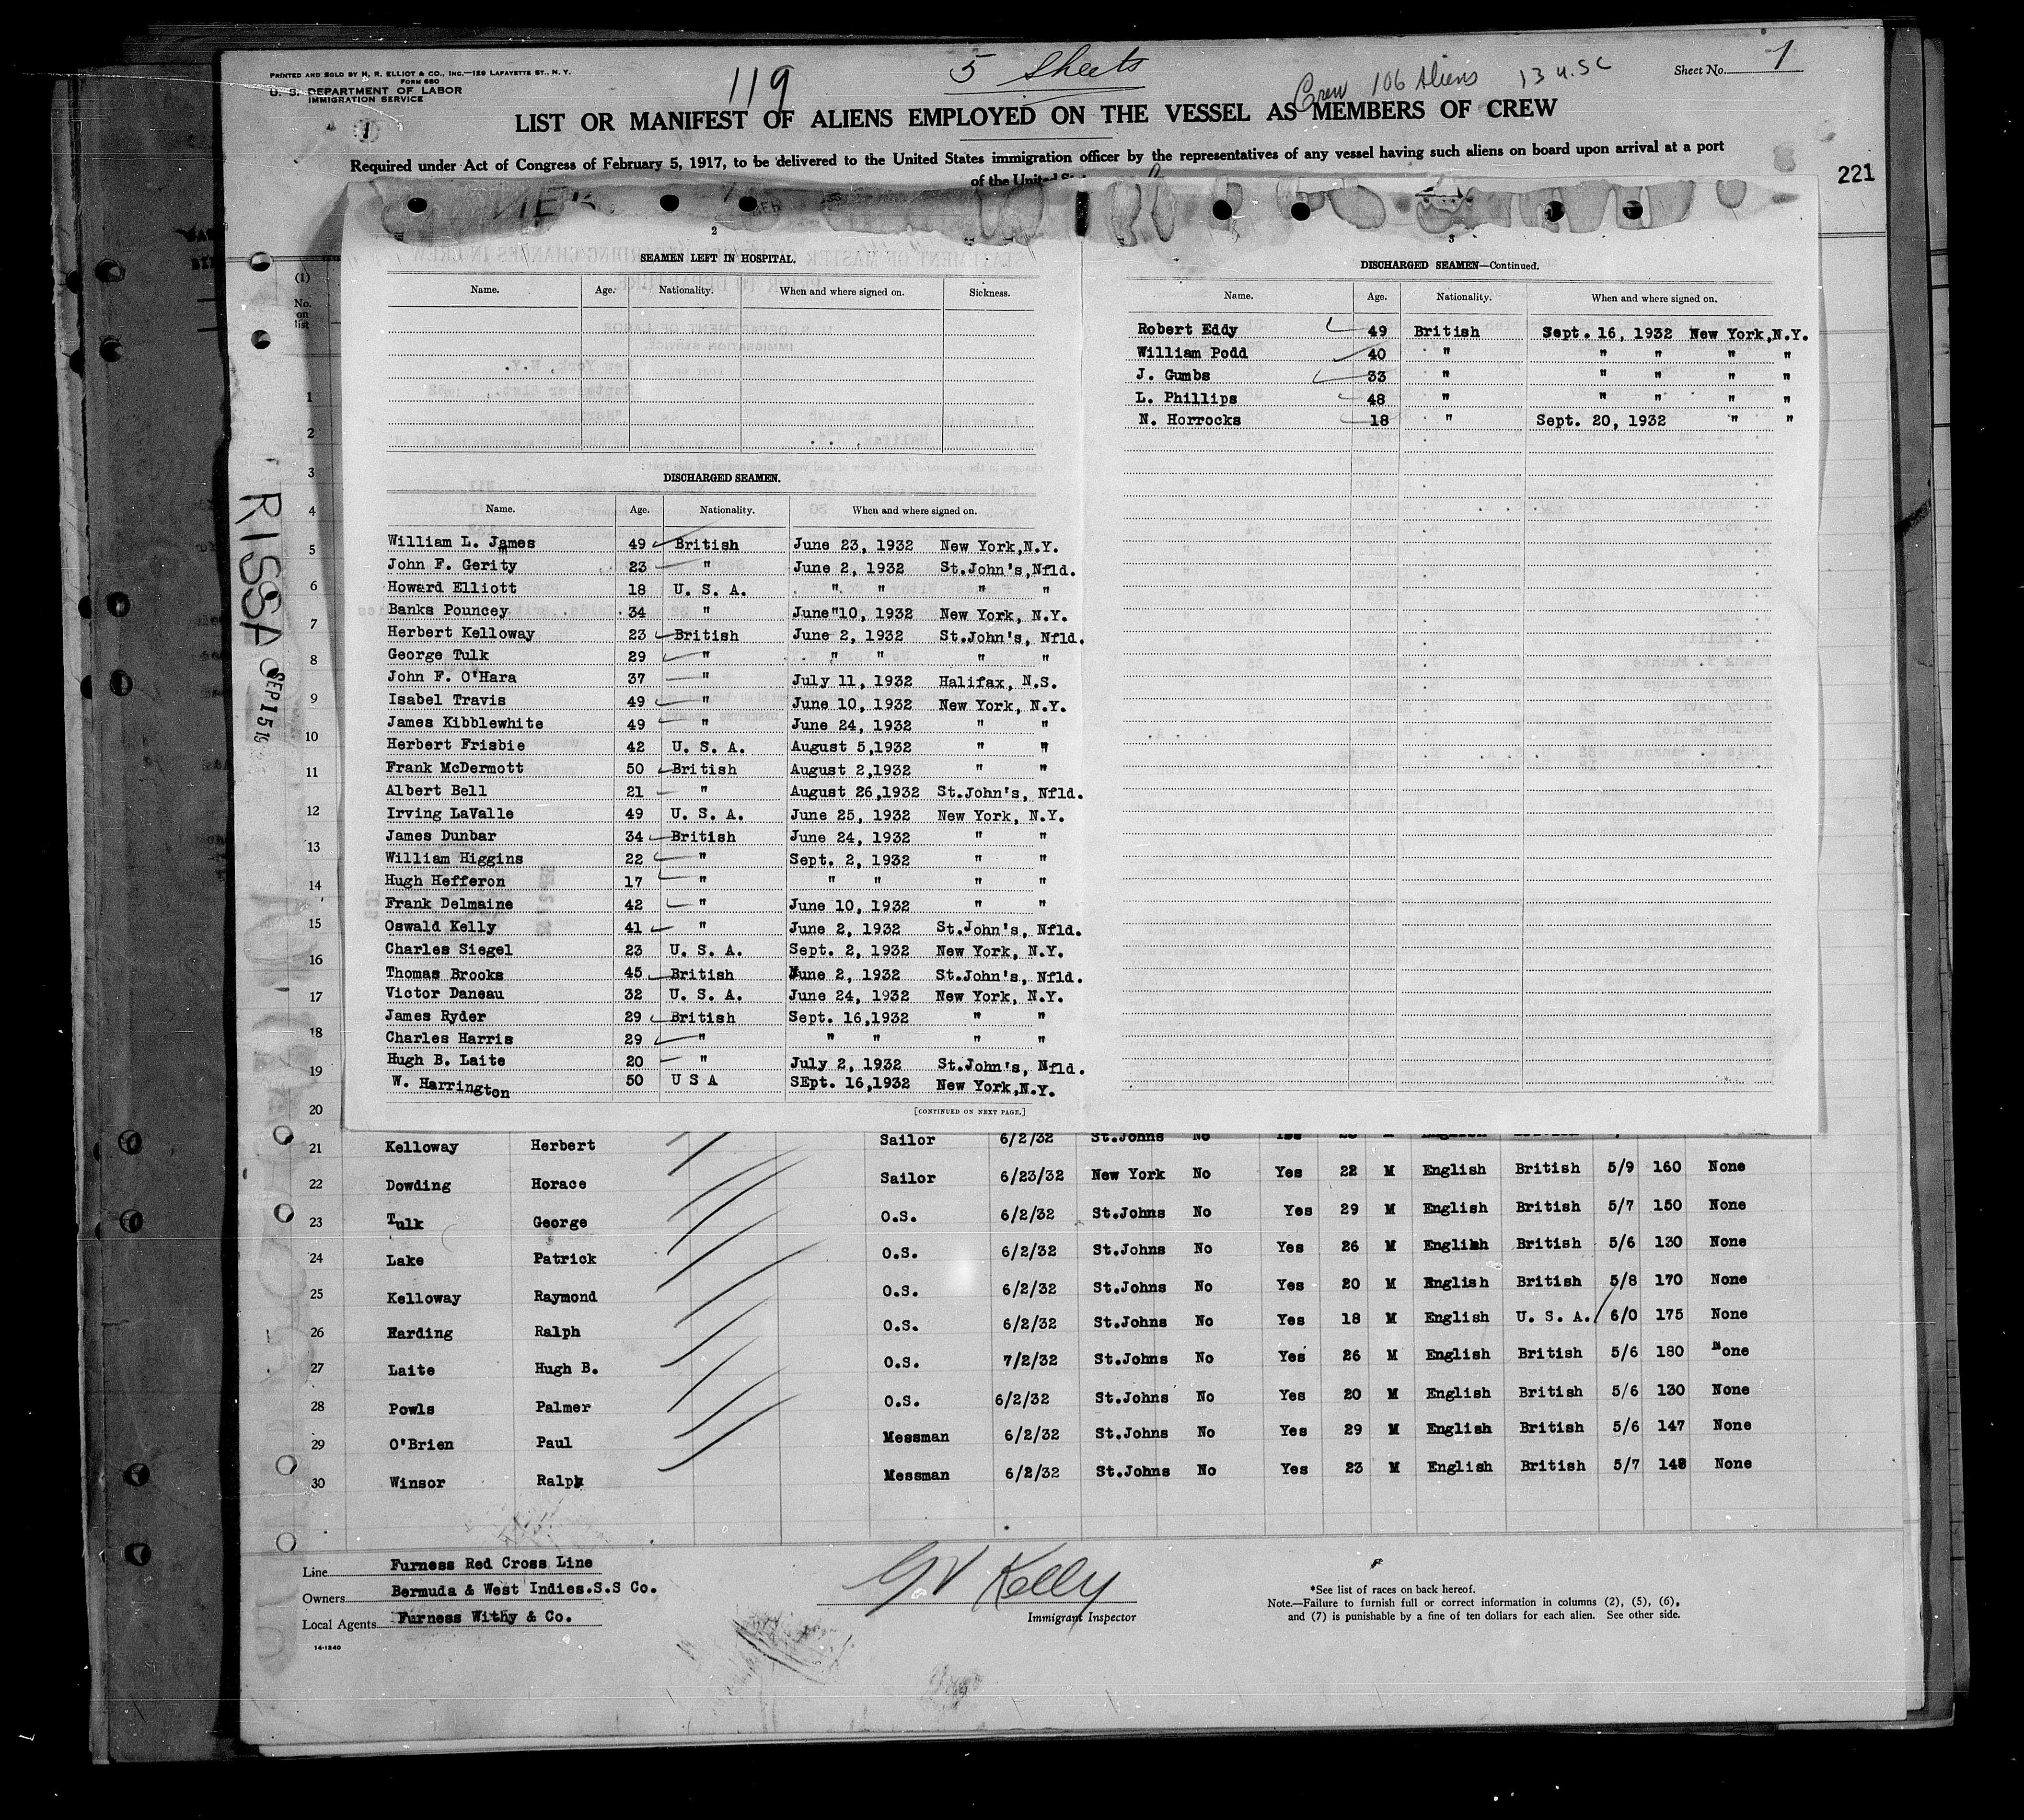 PRINTED AND SOLD BY H. R. ELLIOT & CO., INC.—129 LAFAYETTE ST., N. Y.
FORM 680
U. S. DEPARTMENT OF LABOR
IMMIGRATION SERVICE
119
5 Sheets
Crew 106 Aliens 13 U.S.C
Sheet No. 1
1
LIST OR MANIFEST OF ALIENS EMPLOYED ON THE VESSEL AS MEMBERS OF CREW
Required under Act of Congress of February 5, 1917, to be delivered to the United States immigration officer by the representatives of any vessel having such aliens on board upon arrival at a port
of the United
221
2
SEAMEN LEFT IN HOSPITAL.
Name. Age. Nationality. When and where signed on. Sickness.
DISCHARGED SEAMEN.
Name. Age. Nationality. When and where signed on.
William L. James 49 British June 23, 1932 New York,N.Y.
John F. Gerity 23 " June 2, 1932 St.John's,Nfld.
Howard Elliott 18 U. S. A. " " " "
Banks Pouncey 34 " June"10, 1932 New York, N.Y.
Herbert Kelloway 23 British June 2, 1932 St.John's, Nfld.
George Tulk 29 " " " " "
John F. O'Hara 37 " July 11, 1932 Halifax, N.S.
Isabel Travis 49 " June 10, 1932 New York, N.Y.
James Kibblewhite 49 " June 24, 1932 " "
Herbert Frisbie 42 U. S. A. August 5,1932 " "
Frank McDermott 50 British August 2,1932 " "
Albert Bell 21 " August 26,1932 St.John's, Nfld.
Irving LaValle 49 U. S. A. June 25, 1932 New York, N.Y.
James Dunbar 34 British June 24, 1932 " "
William Higgins 22 " Sept. 2, 1932 " "
Hugh Hefferon 17 " " " " "
Frank Delmaine 42 " June 10, 1932 " "
Oswald Kelly 41 " June 2, 1932 St.John's, Nfld.
Charles Siegel 23 U. S. A. Sept. 2, 1932 New York, N.Y.
Thomas Brooks 45 British June 2, 1932 St.John's, Nfld.
Victor Daneau 32 U. S. A. June 24, 1932 New York, N.Y.
James Ryder 29 British Sept. 16,1932 " "
Charles Harris 29 " " " " "
Hugh B. Laite 20 " July 2, 1932 St.John's, Nfld.
W. Harrington 50 U S A SEpt. 16,1932 New York,N.Y.
[CONTINUED ON NEXT PAGE.]
3
DISCHARGED SEAMEN—Continued.
Name. Age. Nationality. When and where signed on.
Robert Eddy 49 British Sept. 16, 1932 New York,N.Y.
William Podd 40 " " " " "
J. Gumbs 33 " " " " "
L. Phillips 48 " " " " "
N. Horrocks 18 " Sept. 20, 1932 " "
(1)
No. on list
1
2
3
4
5
6
7
8
9
10
11
12
13
14
15
16
17
18
19
20
RISSA
SEP 15 19
21 Kelloway Herbert Sailor 6/2/32 St.Johns No Yes
22 Dowding Horace Sailor 6/23/32 New York No Yes 22 M English British 5/9 160 None
23 Tulk George O.S. 6/2/32 St.Johns No Yes 29 M English British 5/7 150 None
24 Lake Patrick O.S. 6/2/32 St.Johns No Yes 26 M English British 5/6 130 None
25 Kelloway Raymond O.S. 6/2/32 St.Johns No Yes 20 M English British 5/8 170 None
26 Harding Ralph O.S. 6/2/32 St.Johns No Yes 18 M English U. S. A. 6/0 175 None
27 Laite Hugh B. O.S. 7/2/32 St.Johns No Yes 26 M English British 5/6 180 None
28 Powls Palmer O.S. 6/2/32 St.Johns No Yes 20 M English British 5/6 130 None
29 O'Brien Paul Messman 6/2/32 St.Johns No Yes 29 M English British 5/6 147 None
30 Winsor Ralph Messman 6/2/32 St.Johns No Yes 23 M English British 5/7 148 None
Line Furness Red Cross Line
Owners Bermuda & West Indies.S.S Co.
Local Agents Furness Withy & Co.
14-1240
GV Kelly
Immigrant Inspector
*See list of races on back hereof.
Note.—Failure to furnish full or correct information in columns (2), (5), (6),
and (7) is punishable by a fine of ten dollars for each alien. See other side.